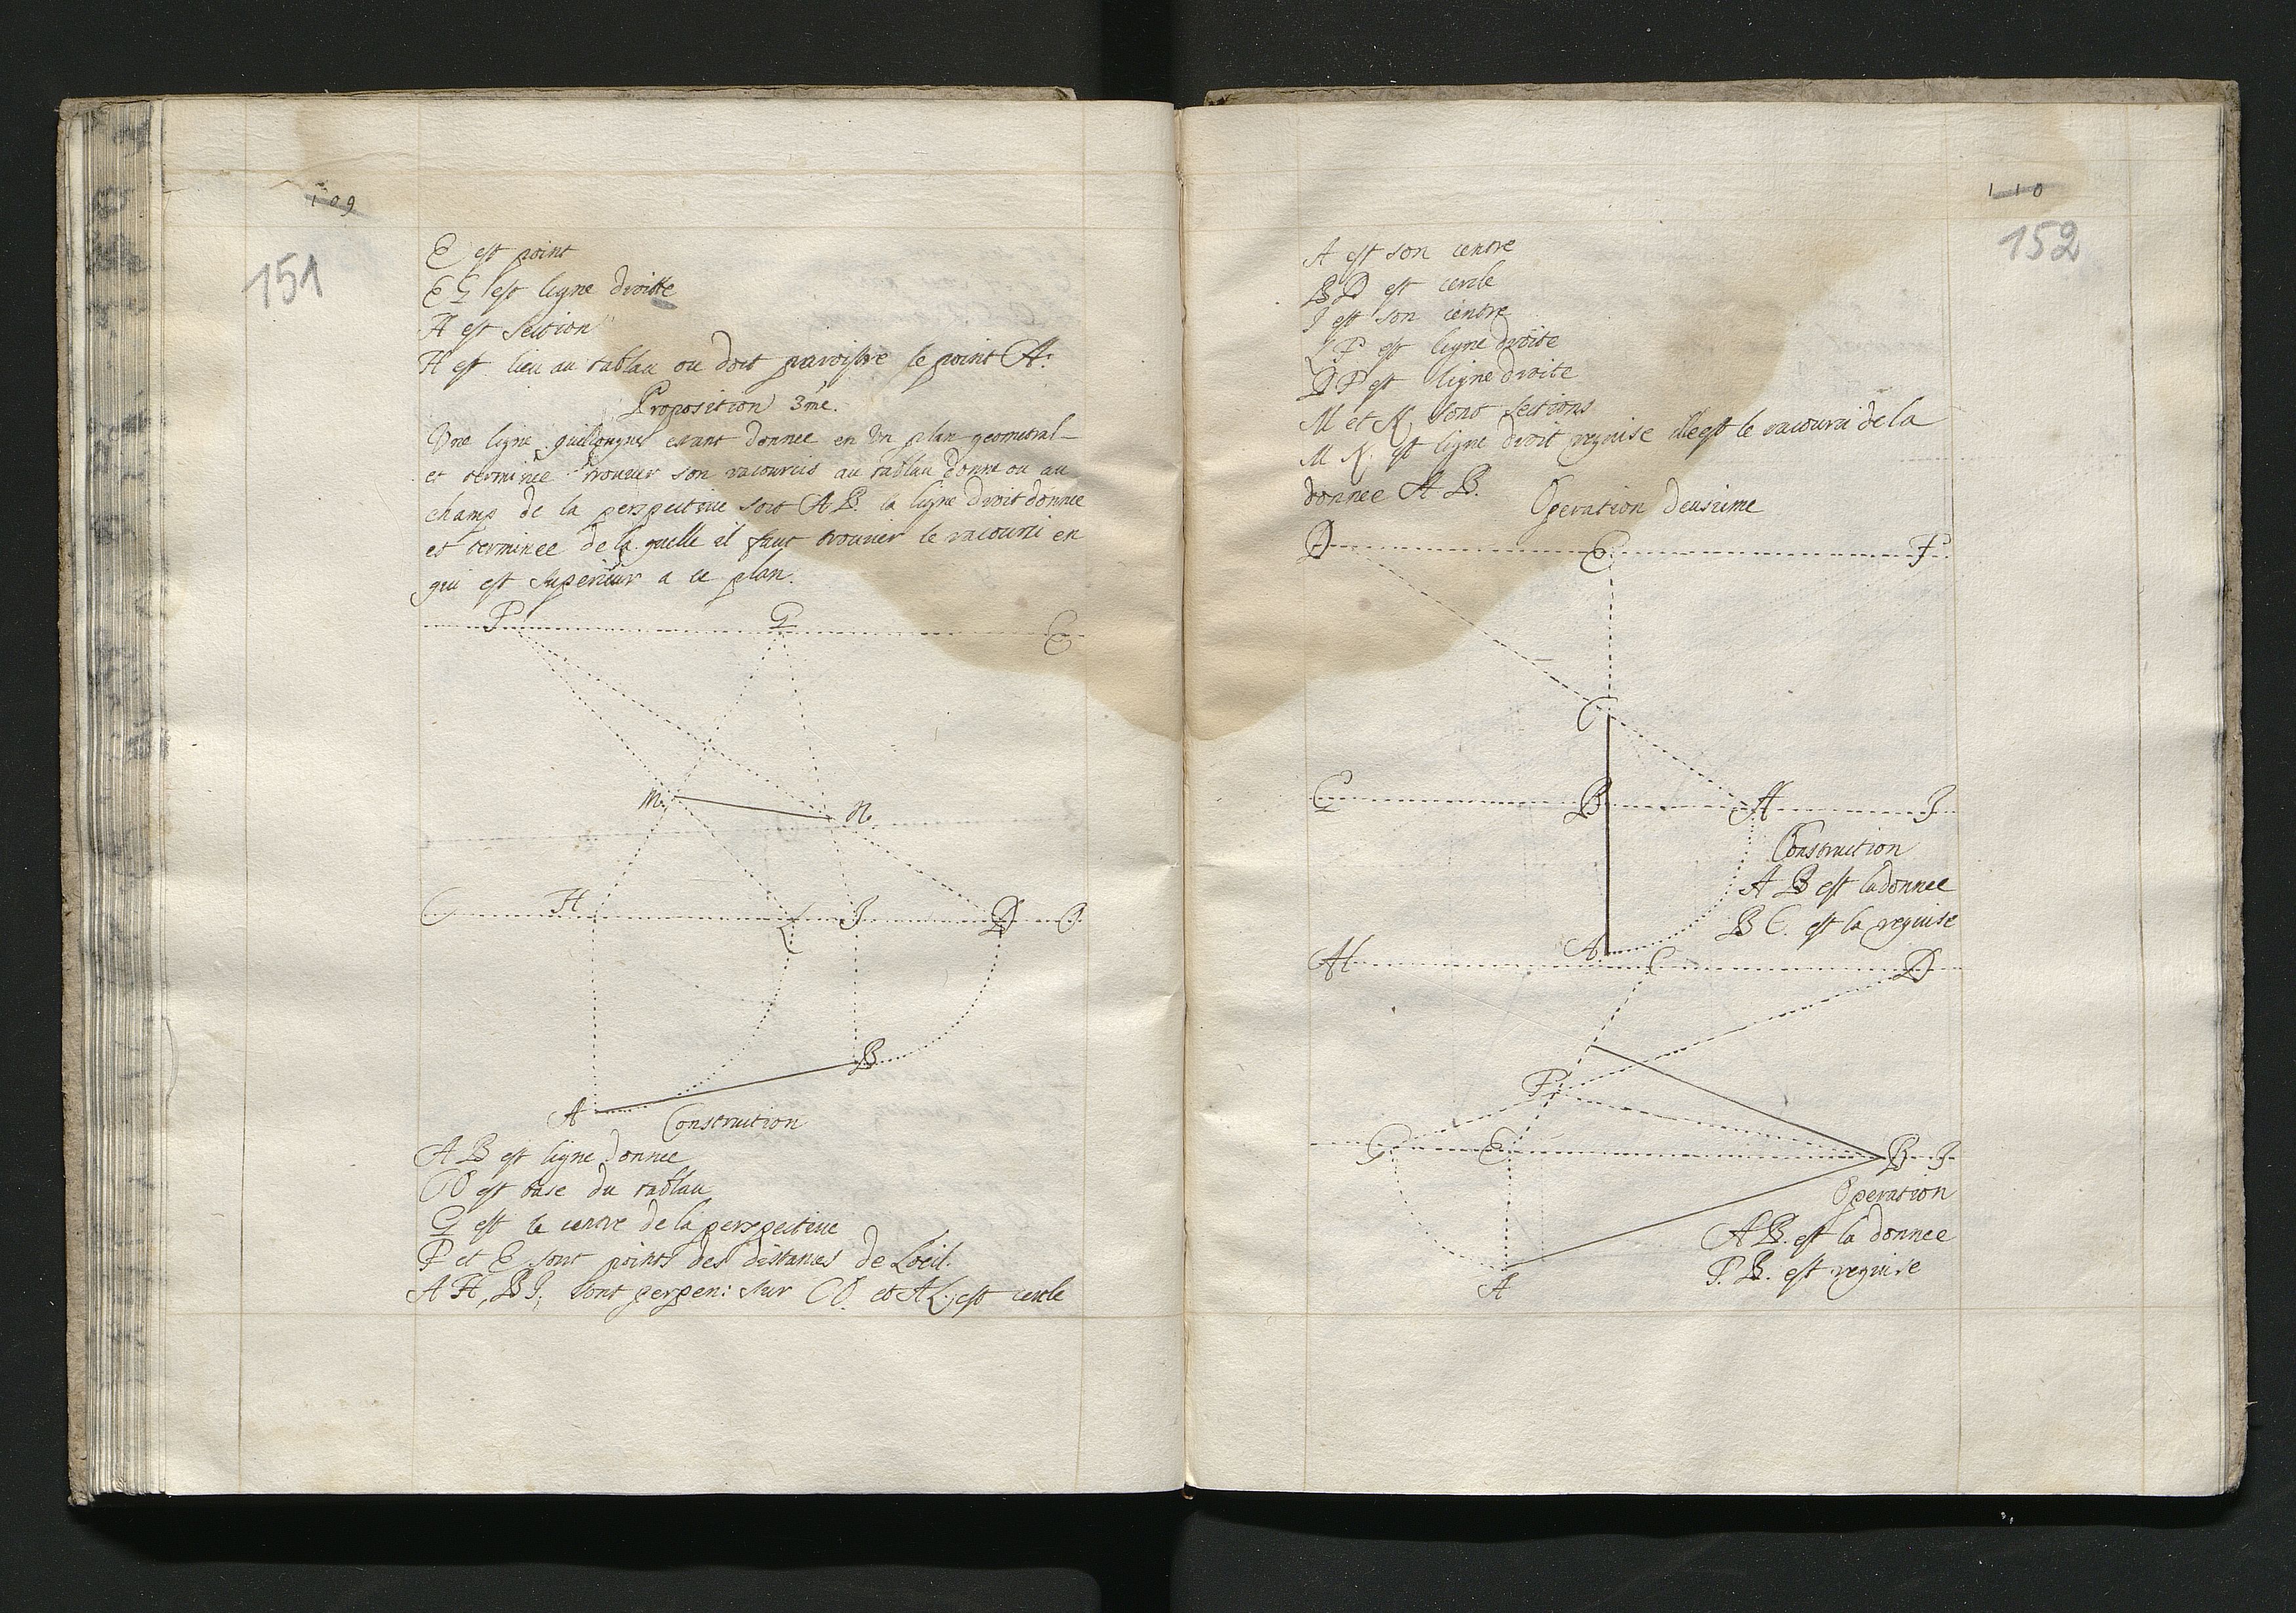 109
151
E est point
EG est ligne droitte
H est section
H est lieu au tablau ou doit paroistre le point A.
Proposition 3me.
Une ligne estant donnee en un plan geometral
et terminée trouver son racourcis au tablau donne ou au
champ de la perspective soit AB. la ligne droit donnee
et terminee de la quelle il faut trouver le racourci en
qui est superieur a ce plan.
F G E
M. N.
C H L I D O.
B
A Construction
AB est ligne donnee
CO est base du tablau
G est le centre de la perspective
F et E sont points des distances de Loeil.
AH, BI, sont perpen: sur CO. et AL, est cercle
110
152
A est son centre
BD est cercle
I est son centre
LF est ligne droite
DF est ligne droite
M et N sont sections
MN. est ligne droit requise elle est le racourci de la
donnee AB. Operation deusieme
D E F
C
G B H I
Construction
AB est la donnee
BC. est la requise
A
H C D
F
G E B I
Operation
AB. est la donnee
F.B. est requise
A